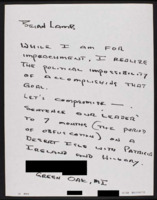 Brian Lamb,
While I am for
impeachment, I realize
the political impossibility
of accomplishing that
goal.
Let's compromise —
sentence our leader
to 7 months (the period
of obfuscation) on a
desert isle with Patricia
Ireland and Hillary.
Green Oak, MI